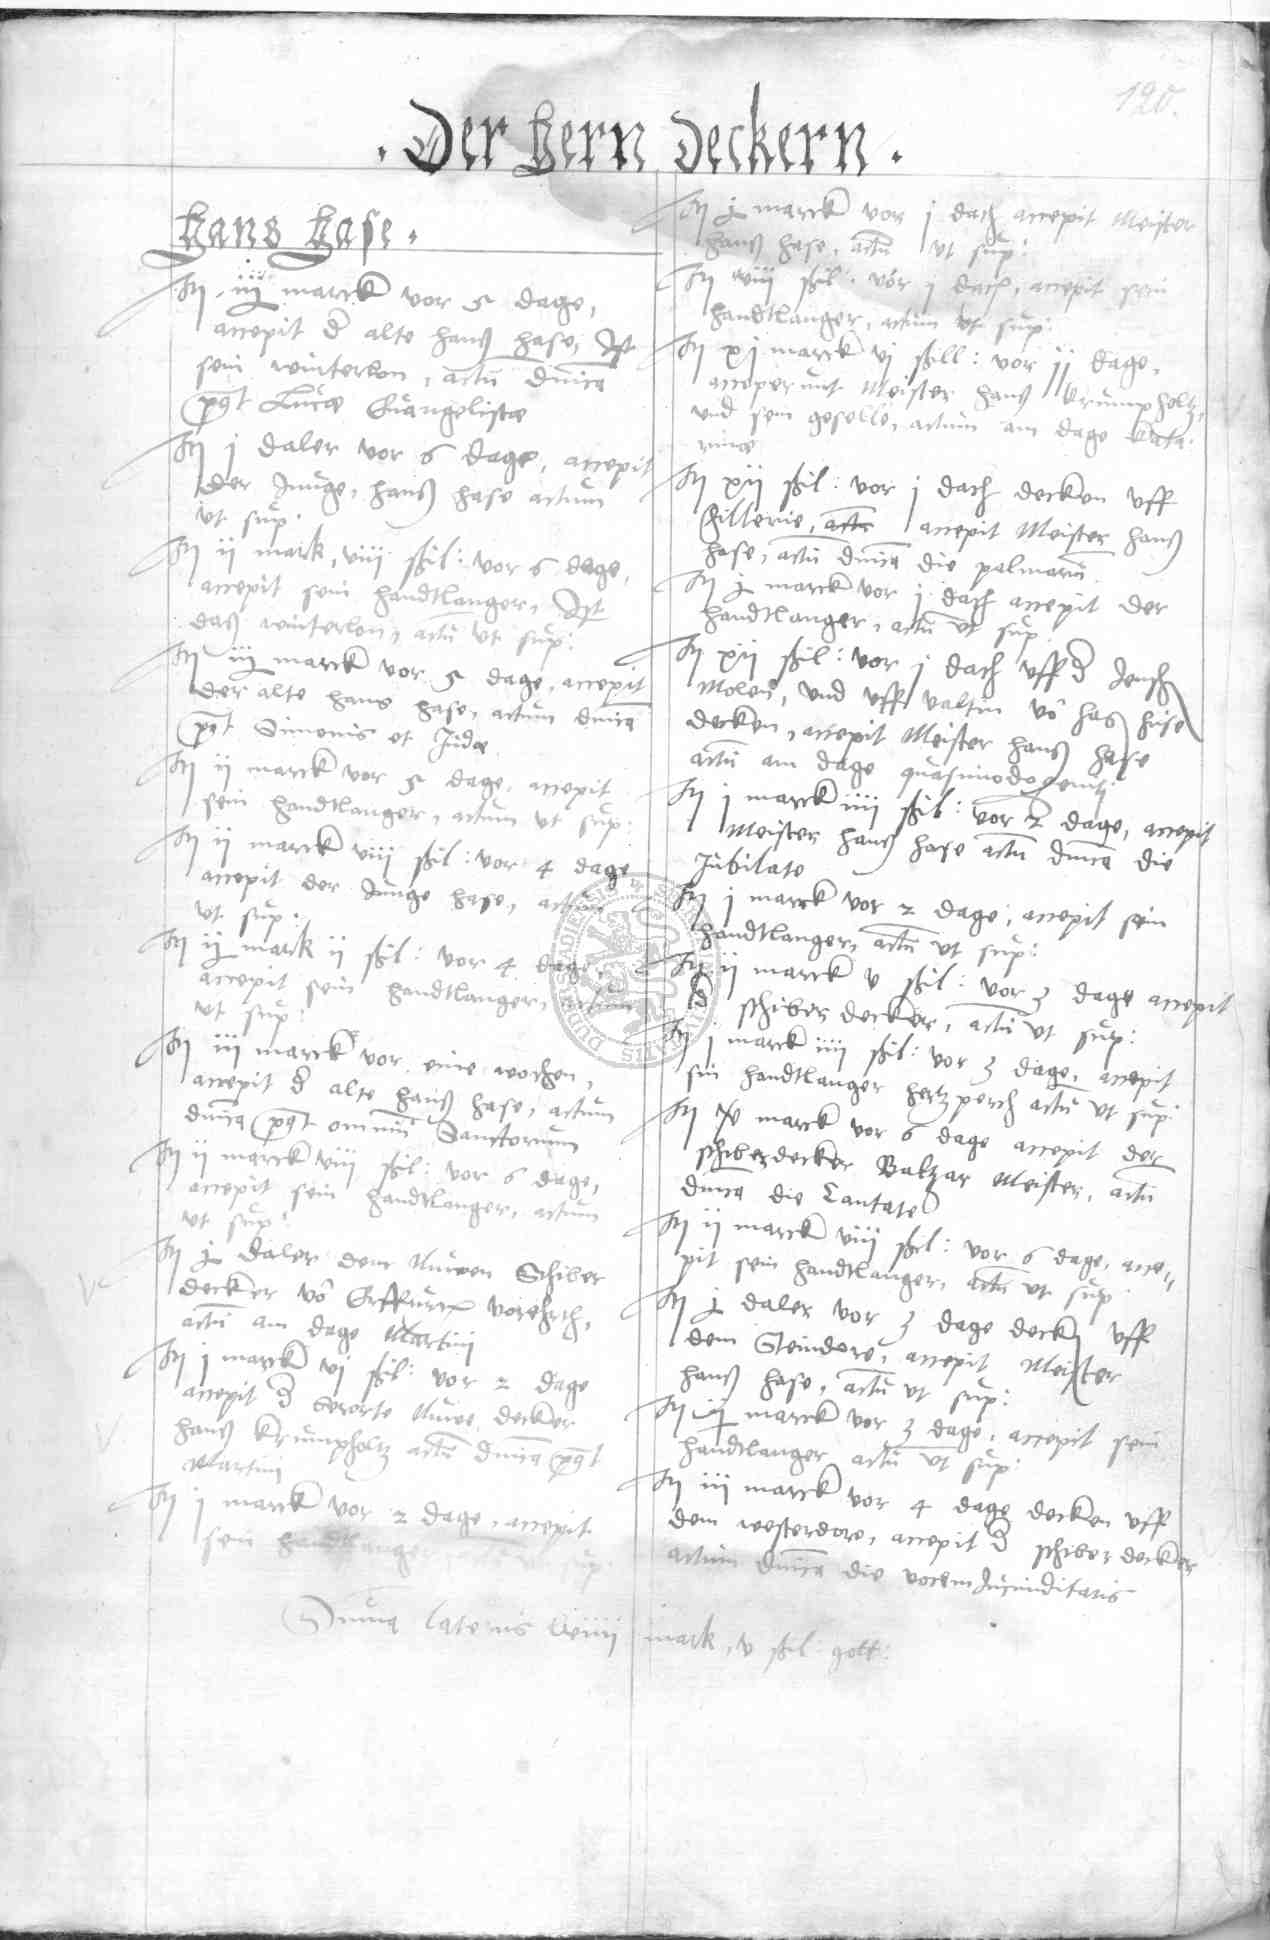 120.
. Der hern deckern .
Hans Hase .
It iij marck vor 5 dage,
accepit d alte hanß hase, Ist
sein winterlon, actū dnica
post Lucæ Euangelistæ
It j daler vor 6 dage, accepit
der Junge, hanß hase actum
vt sup.
It ij mark, viiij ßil: vor 6 dage,
accepit sein handtlanger, Ist
daß winterlon, actū vt sup:
It iij marck vor 5 dage, accepit
der alte hans hase, actum dnica
post Simonis et Judæ
It ij marck vor 5 dage, accepit
sein handtlanger, actum vt sup:
It ij marck viij ßil: vor 4 dage
accepit der Junge hase, actum
vt sup.
It ij mark ij ßil: vor 4 dage,
accepit sein handtlanger, actum
vt sup:
It iij marck vor eine wochen,
accepit d alte hanß hase, actum
dnica post omniū Sanctorum
It ij marck viij ßil: vor 6 dage,
accepit sein handtlanger, actum
vt sup:
It j daler dem Nuwen Schiber
decker vō Erffurt vorehrth,
actū am dage Martini
It j marck vj ßil: vor 2 dage
accepit d Nuwe decker
hanß Krumpholtz actū dnica post
Martini
It j marck vor 2 dage, accepit
sein handtlanger actū vt sup
It j marck vor j dach accepit Meister
hanß hase, actū vt sup:
It viij ßil: vor j dach, accepit sein
handtlanger, actum vt sup:
It xj marck vj ßill: vor ij dage,
acceperunt Meister hanß Krumpholtz,
vnd sein geselle, actum am dage Kata-
rinæ
It xij ßil: vor j dach decken vff
Gillerie, actū accepit Meister hanß
hase, actū dnica die palmarū
It j marck vor j dach accepit der
handtlanger, actū vt sup
It xij ßil: vor j dach vff d
Molen, vnd vff valtin vō has huse
decken, accepit Meister hanß hase
actū am dage quasimodogeniti
It j marck iiij ßil: vor 2 dage, accepit
Meister hanß hase actū dnica die
Jubilate
It j marck vor 2 dage, accepit sein
handtlanger, actū vt sup:
It ij marck v ßil: vor 3 dage accepit
d schiberdecker, actū vt sup:
It j marck iiij ßil: vor 3 dage, accepit
sin handtlanger hertzperch actū vt sup:
It marck vor 6 dage accepit der
schiberdecker Baltzar Meister, actū
dnica die Cantate
It ij marck viij ßil: vor 6 dage, acce-
pit sein handtlanger, actū vt sup
It j daler vor 3 dage deck vff
dem Steindore, accepit Meister
hanß hase, actū vt sup:
It ij marck vor 3 dage, accepit sein
handtlanger actū vt sup:
It iij marck vor 4 dage decken vff
dem westerdore, accepit d schiberdecker
actum dnica die vocem Jucunditatis
Suma lateris mark, v ßil: gott: